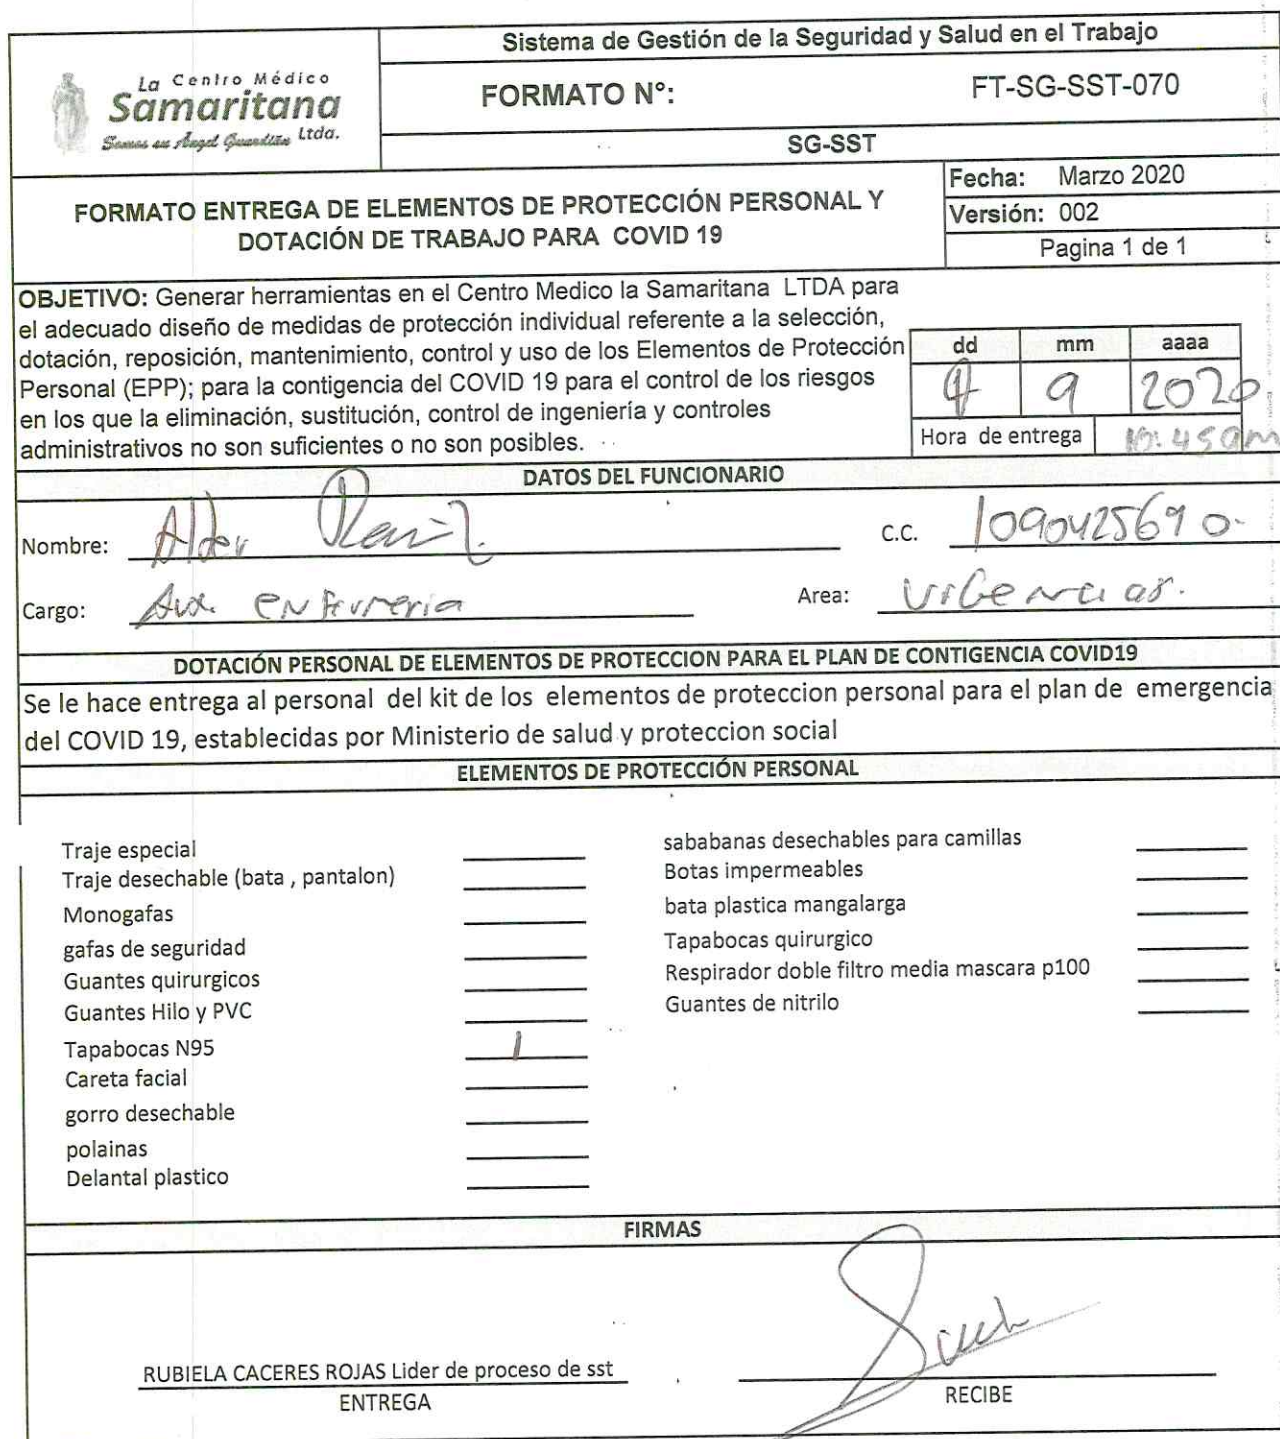 La Centro Médico
Samaritana
Somos su Ángel Guardián Ltda.
Sistema de Gestión de la Seguridad y Salud en el Trabajo
FORMATO N°: FT-SG-SST-070
SG-SST
FORMATO ENTREGA DE ELEMENTOS DE PROTECCIÓN PERSONAL Y
DOTACIÓN DE TRABAJO PARA COVID 19
Fecha: Marzo 2020
Versión: 002
Pagina 1 de 1
OBJETIVO: Generar herramientas en el Centro Medico la Samaritana LTDA para
el adecuado diseño de medidas de protección individual referente a la selección,
dotación, reposición, mantenimiento, control y uso de los Elementos de Protección
Personal (EPP); para la contigencia del COVID 19 para el control de los riesgos
en los que la eliminación, sustitución, control de ingeniería y controles
administrativos no son suficientes o no son posibles.
dd mm aaaa
9 2020
Hora de entrega 10:45am
DATOS DEL FUNCIONARIO
Nombre: C.C. 1090425690
Cargo: Aux. enfermeria Area: Urgencias.
DOTACIÓN PERSONAL DE ELEMENTOS DE PROTECCION PARA EL PLAN DE CONTIGENCIA COVID19
Se le hace entrega al personal del kit de los elementos de proteccion personal para el plan de emergencia
del COVID 19, establecidas por Ministerio de salud y proteccion social
ELEMENTOS DE PROTECCIÓN PERSONAL
Traje especial
Traje desechable (bata , pantalon)
Monogafas
gafas de seguridad
Guantes quirurgicos
Guantes Hilo y PVC
Tapabocas N95 1
Careta facial
gorro desechable
polainas
Delantal plastico
sababanas desechables para camillas
Botas impermeables
bata plastica mangalarga
Tapabocas quirurgico
Respirador doble filtro media mascara p100
Guantes de nitrilo
FIRMAS
RUBIELA CACERES ROJAS Lider de proceso de sst
ENTREGA
RECIBE